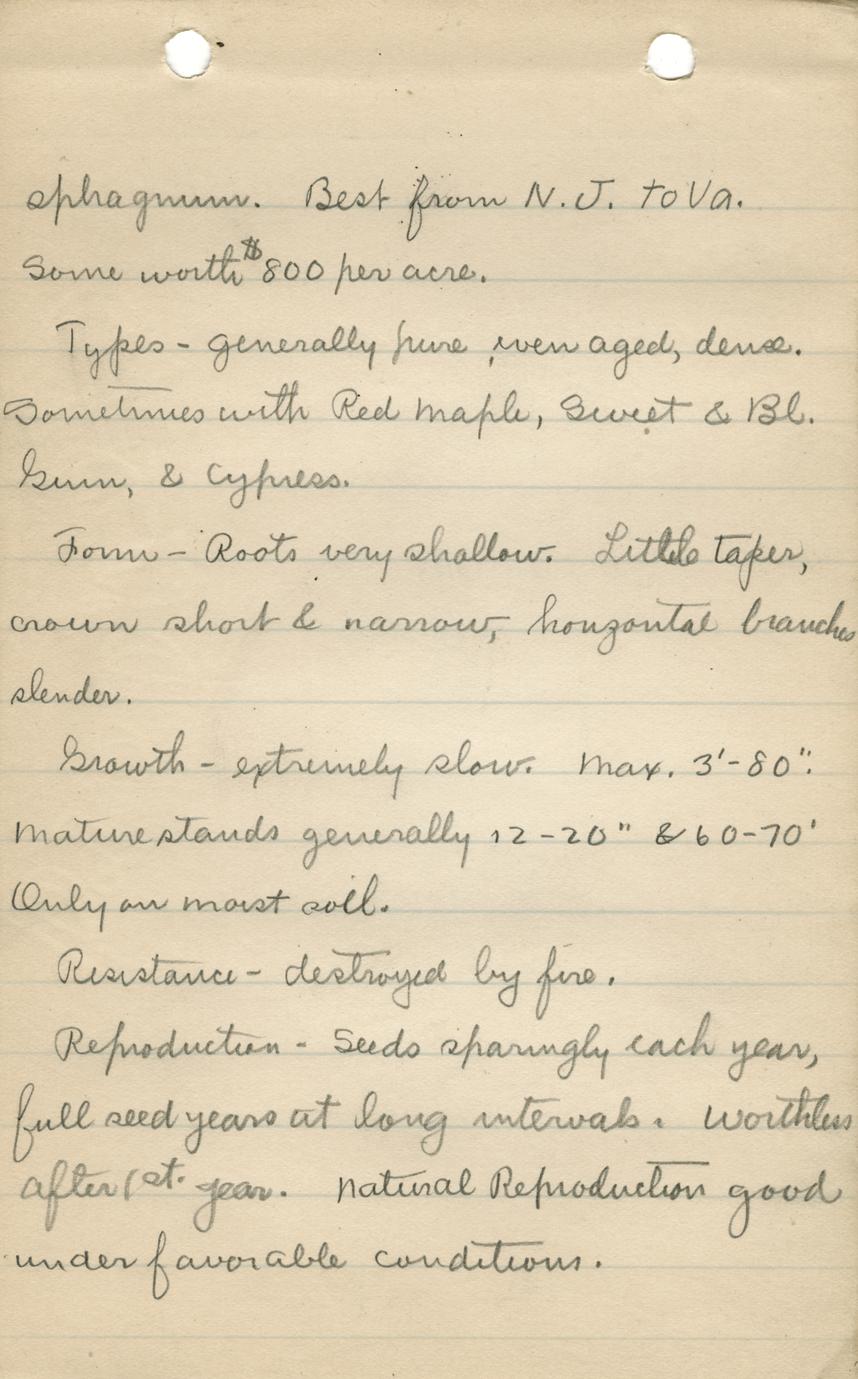 sphagnum. Best from N.J. to Va.
Some worth $800 per acre.
Types - generally pure, even aged, dense.
Sometimes with Red Maple, Sweet & Bl.
Gum, & Cypress.
Form - Roots very shallow. Little taper,
crown short & narrow, horizontal branches
slender.
Growth - extremely slow. Max. 3'-80".
Mature stands generally 12-20" & 60-70'
Only on moist soil.
Resistance - destroyed by fire.
Reproduction - Seeds sparingly each year,
full seed years at long intervals. Worthless
after 1st. year. Natural Reproduction good
under favorable conditions.